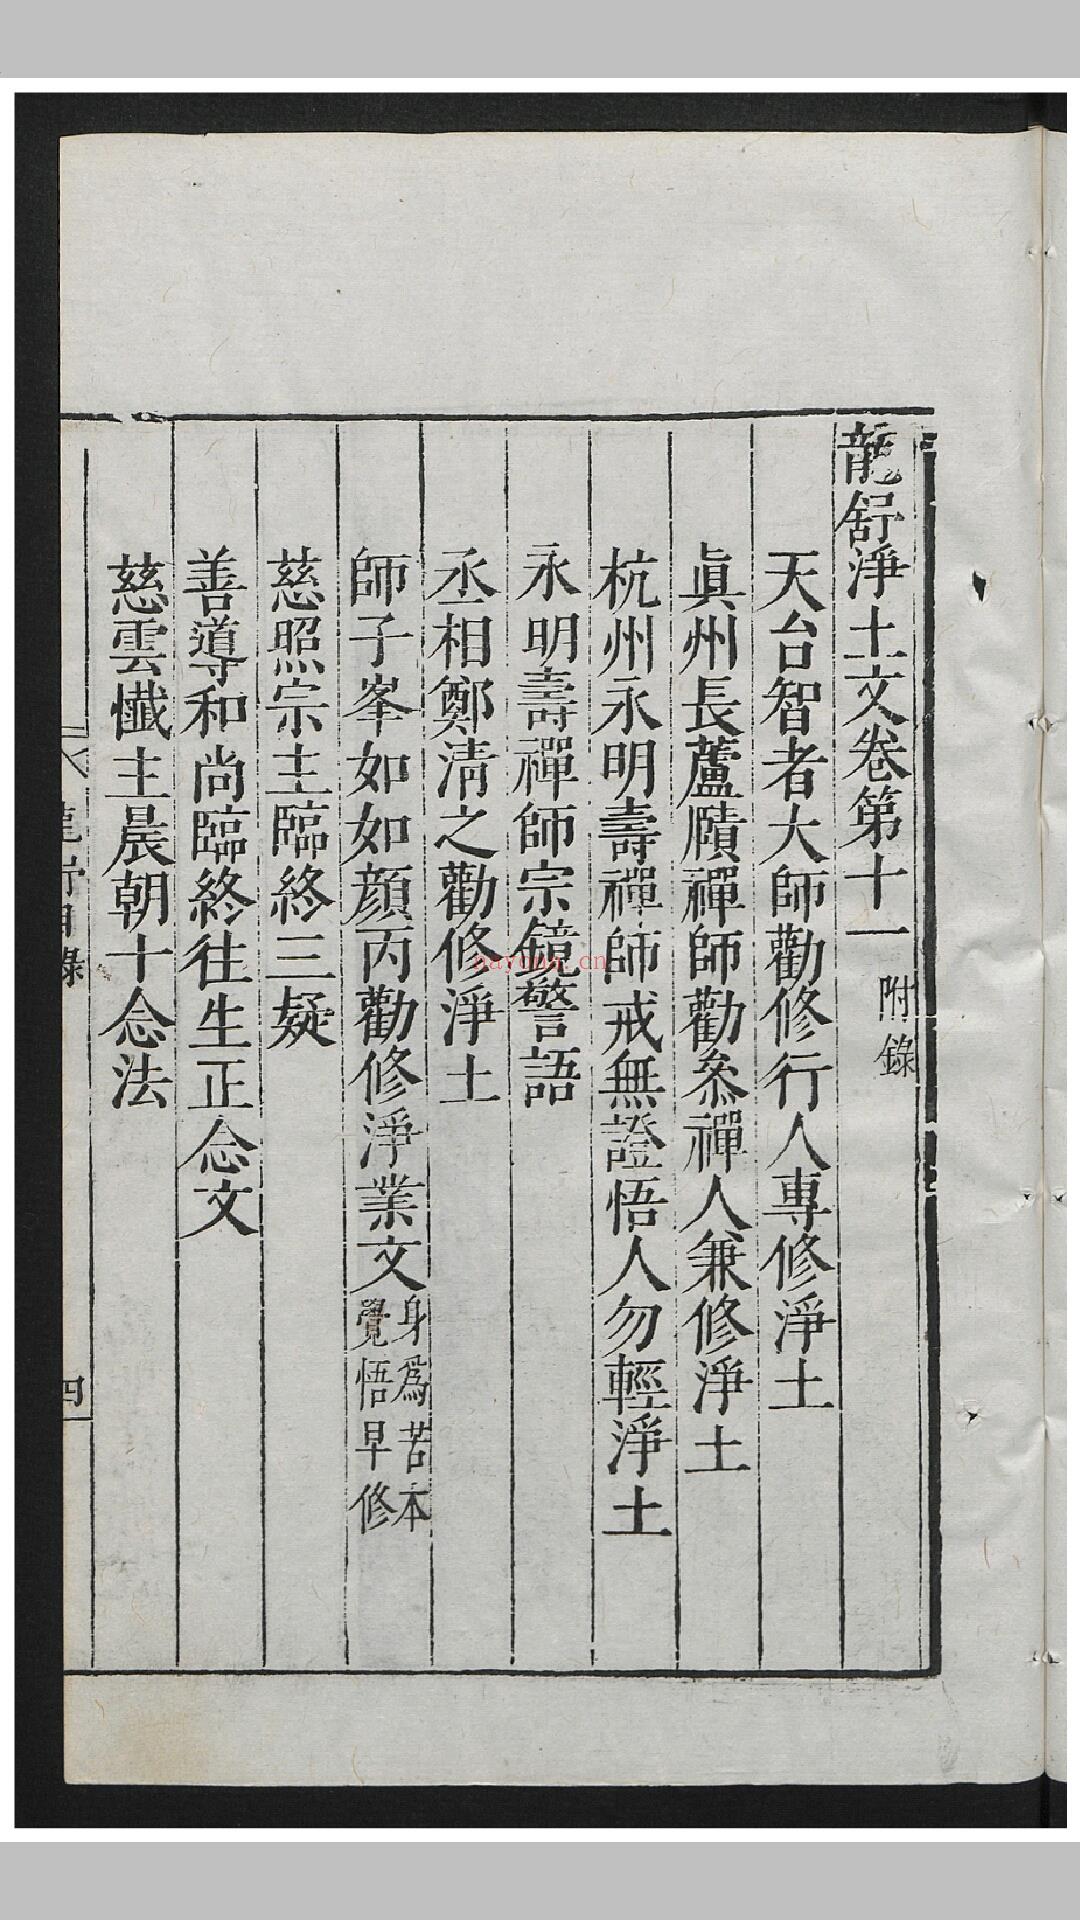 龍舒淨土文卷第十一 附錄
天台智者大師勸修行人專修淨土
眞州長蘆賾禪師勸叅禪人兼修淨土
杭州永明壽禪師戒無證悟人勿輕淨土
永明壽禪師宗鏡警語
丞相鄭清之勸修淨土
師子峯如如顔丙勸修淨業文 身爲苦本
覺悟早修
慈照宗主臨終三疑
善導和尚臨終往生正念文
慈雲懺主晨朝十念法
龍舒目錄
四
nayona.cn